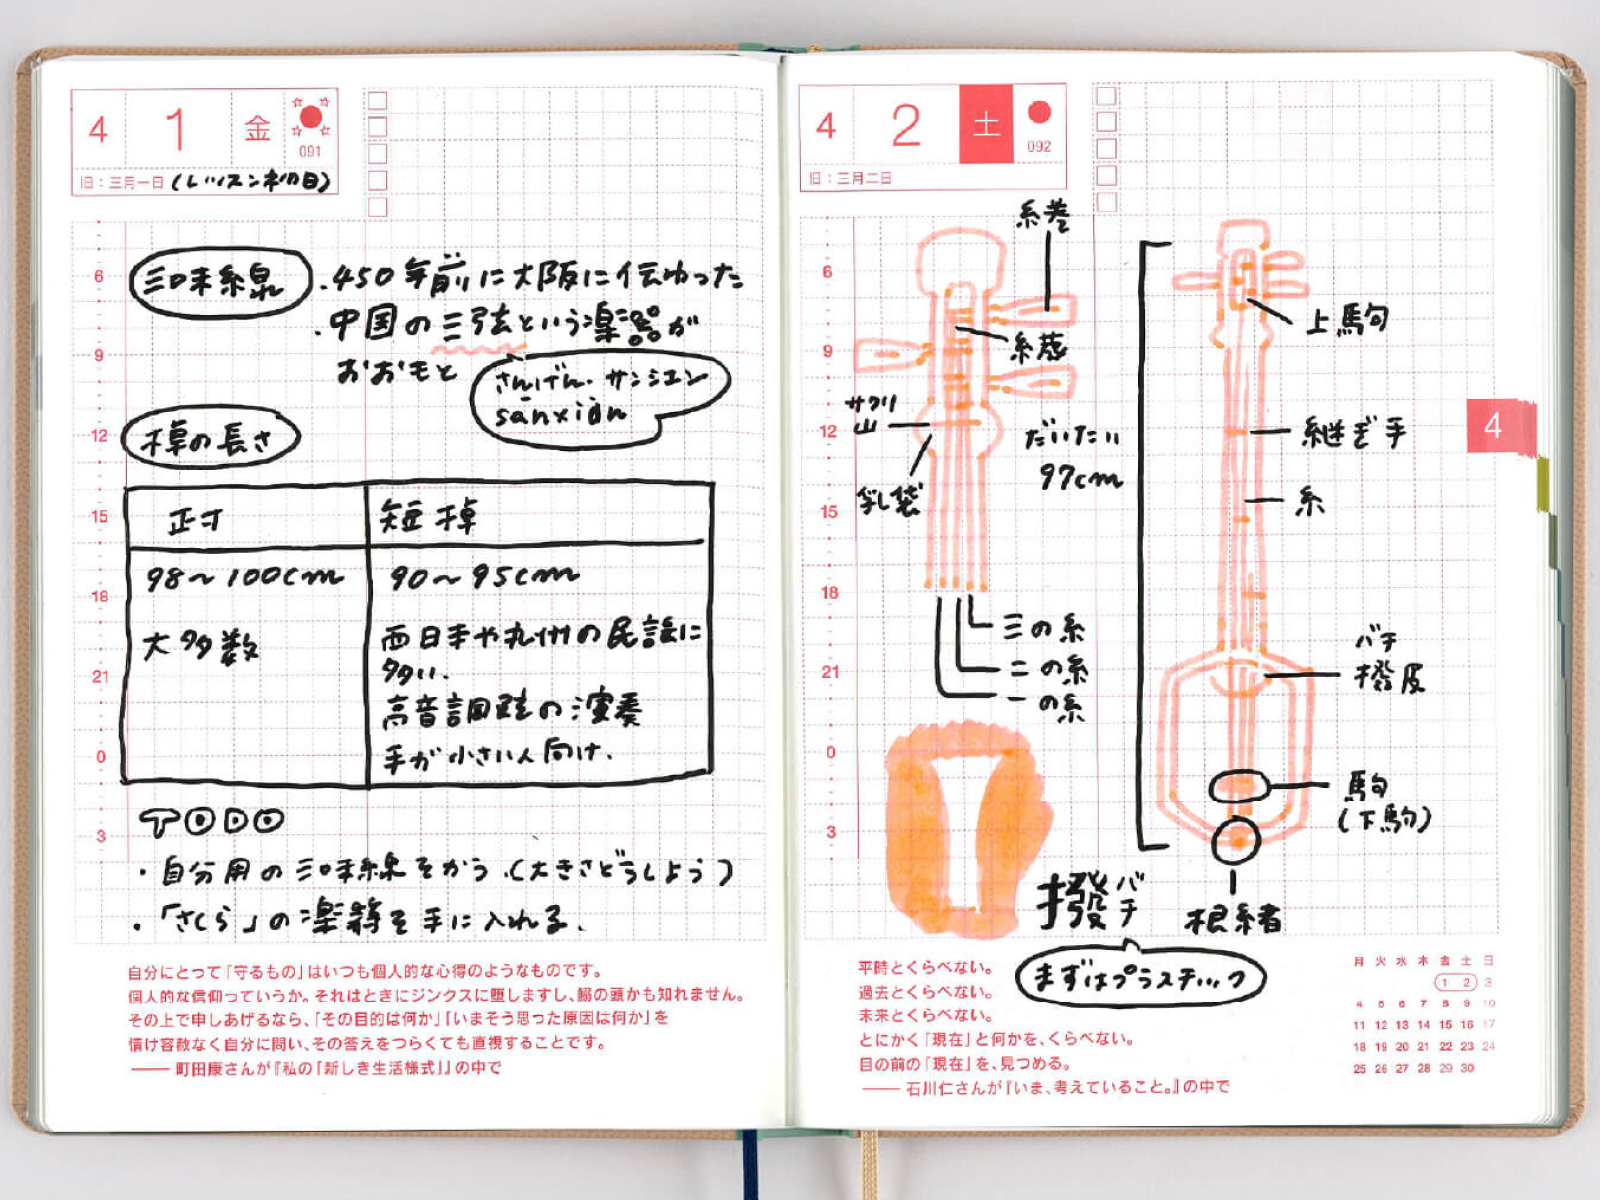 4 1 金
091
旧：三月一日 (レッスン初日)
三味線
・450年前に大阪に伝わった
・中国の三弦という楽器が
おおもと
さんげん・サンシエン
sānxián
棹の長さ
正寸 短棹
98～100cm 90～95cm
大多数
西日本や九州の民謡に
多い.
高音調弦の演奏
手が小さい人向け.
TODO
・自分用の三味線をかう.(大きさどうしよう)
・「さくら」の楽譜を手に入れる.
6
9
12
15
18
21
0
3
自分にとって「守るもの」はいつも個人的な心得のようなものです。
個人的な信仰っていうか。それはときにジンクスに堕しますし、鰯の頭かも知れません。
その上で申しあげるなら、「その目的は何か」「いまそう思った原因は何か」を
情け容赦なく自分に問い、その答えをつらくても直視することです。
―― 町田康さんが『私の「新しき生活様式」』の中で
4 2 土
092
旧：三月二日
糸巻
糸蔵
サワリ
山
乳袋
三の糸
二の糸
一の糸
だいたい
97cm
上駒
継ぎ手
糸
バチ
撥皮
駒
(下駒)
根緒
撥 バチ
まずはプラスチック
6
9
12
15
18
21
0
3
4
平時とくらべない。
過去とくらべない。
未来とくらべない。
とにかく「現在」と何かを、くらべない。
目の前の「現在」を、見つめる。
―― 石川仁さんが『いま、考えていること。』の中で
月 火 水 木 金 土 日
1 2 3
4 5 6 7 8 9 10
11 12 13 14 15 16 17
18 19 20 21 22 23 24
25 26 27 28 29 30